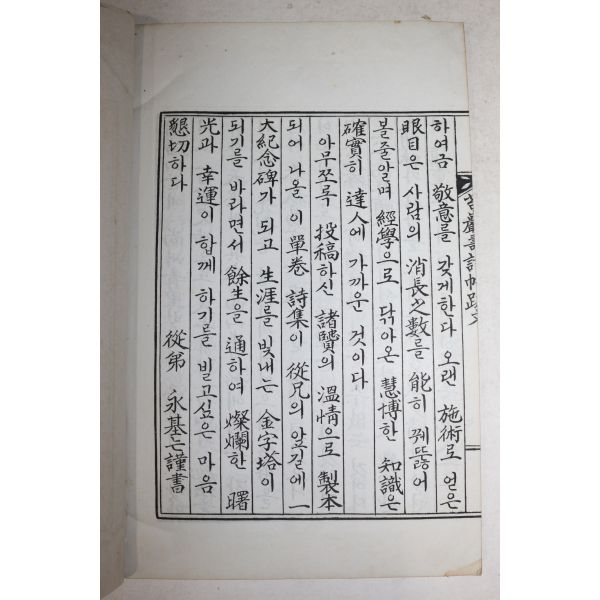 하여금 敬意를 갖게한다 오랜 施術로 얻은
眼目은 사람의 消長之數를 能히 꿰뚫어
볼줄알며 經學으로 닦아온 慧博한 知識은
確實히 達人에 가까운 것이다
아무쪼록 投稿하신 諸賢의 溫情으로 製本
되어 나올 이 單卷 詩集이 從兄의 앞길에 一
大紀念碑가 되고 生涯를 빛내는 金字塔이
되기를 바라면서 餘生을 通하여 燦爛한 曙
光과 幸運이 함께 하기를 빌고싶은 마음
懇切하다
從弟 永基는 謹書